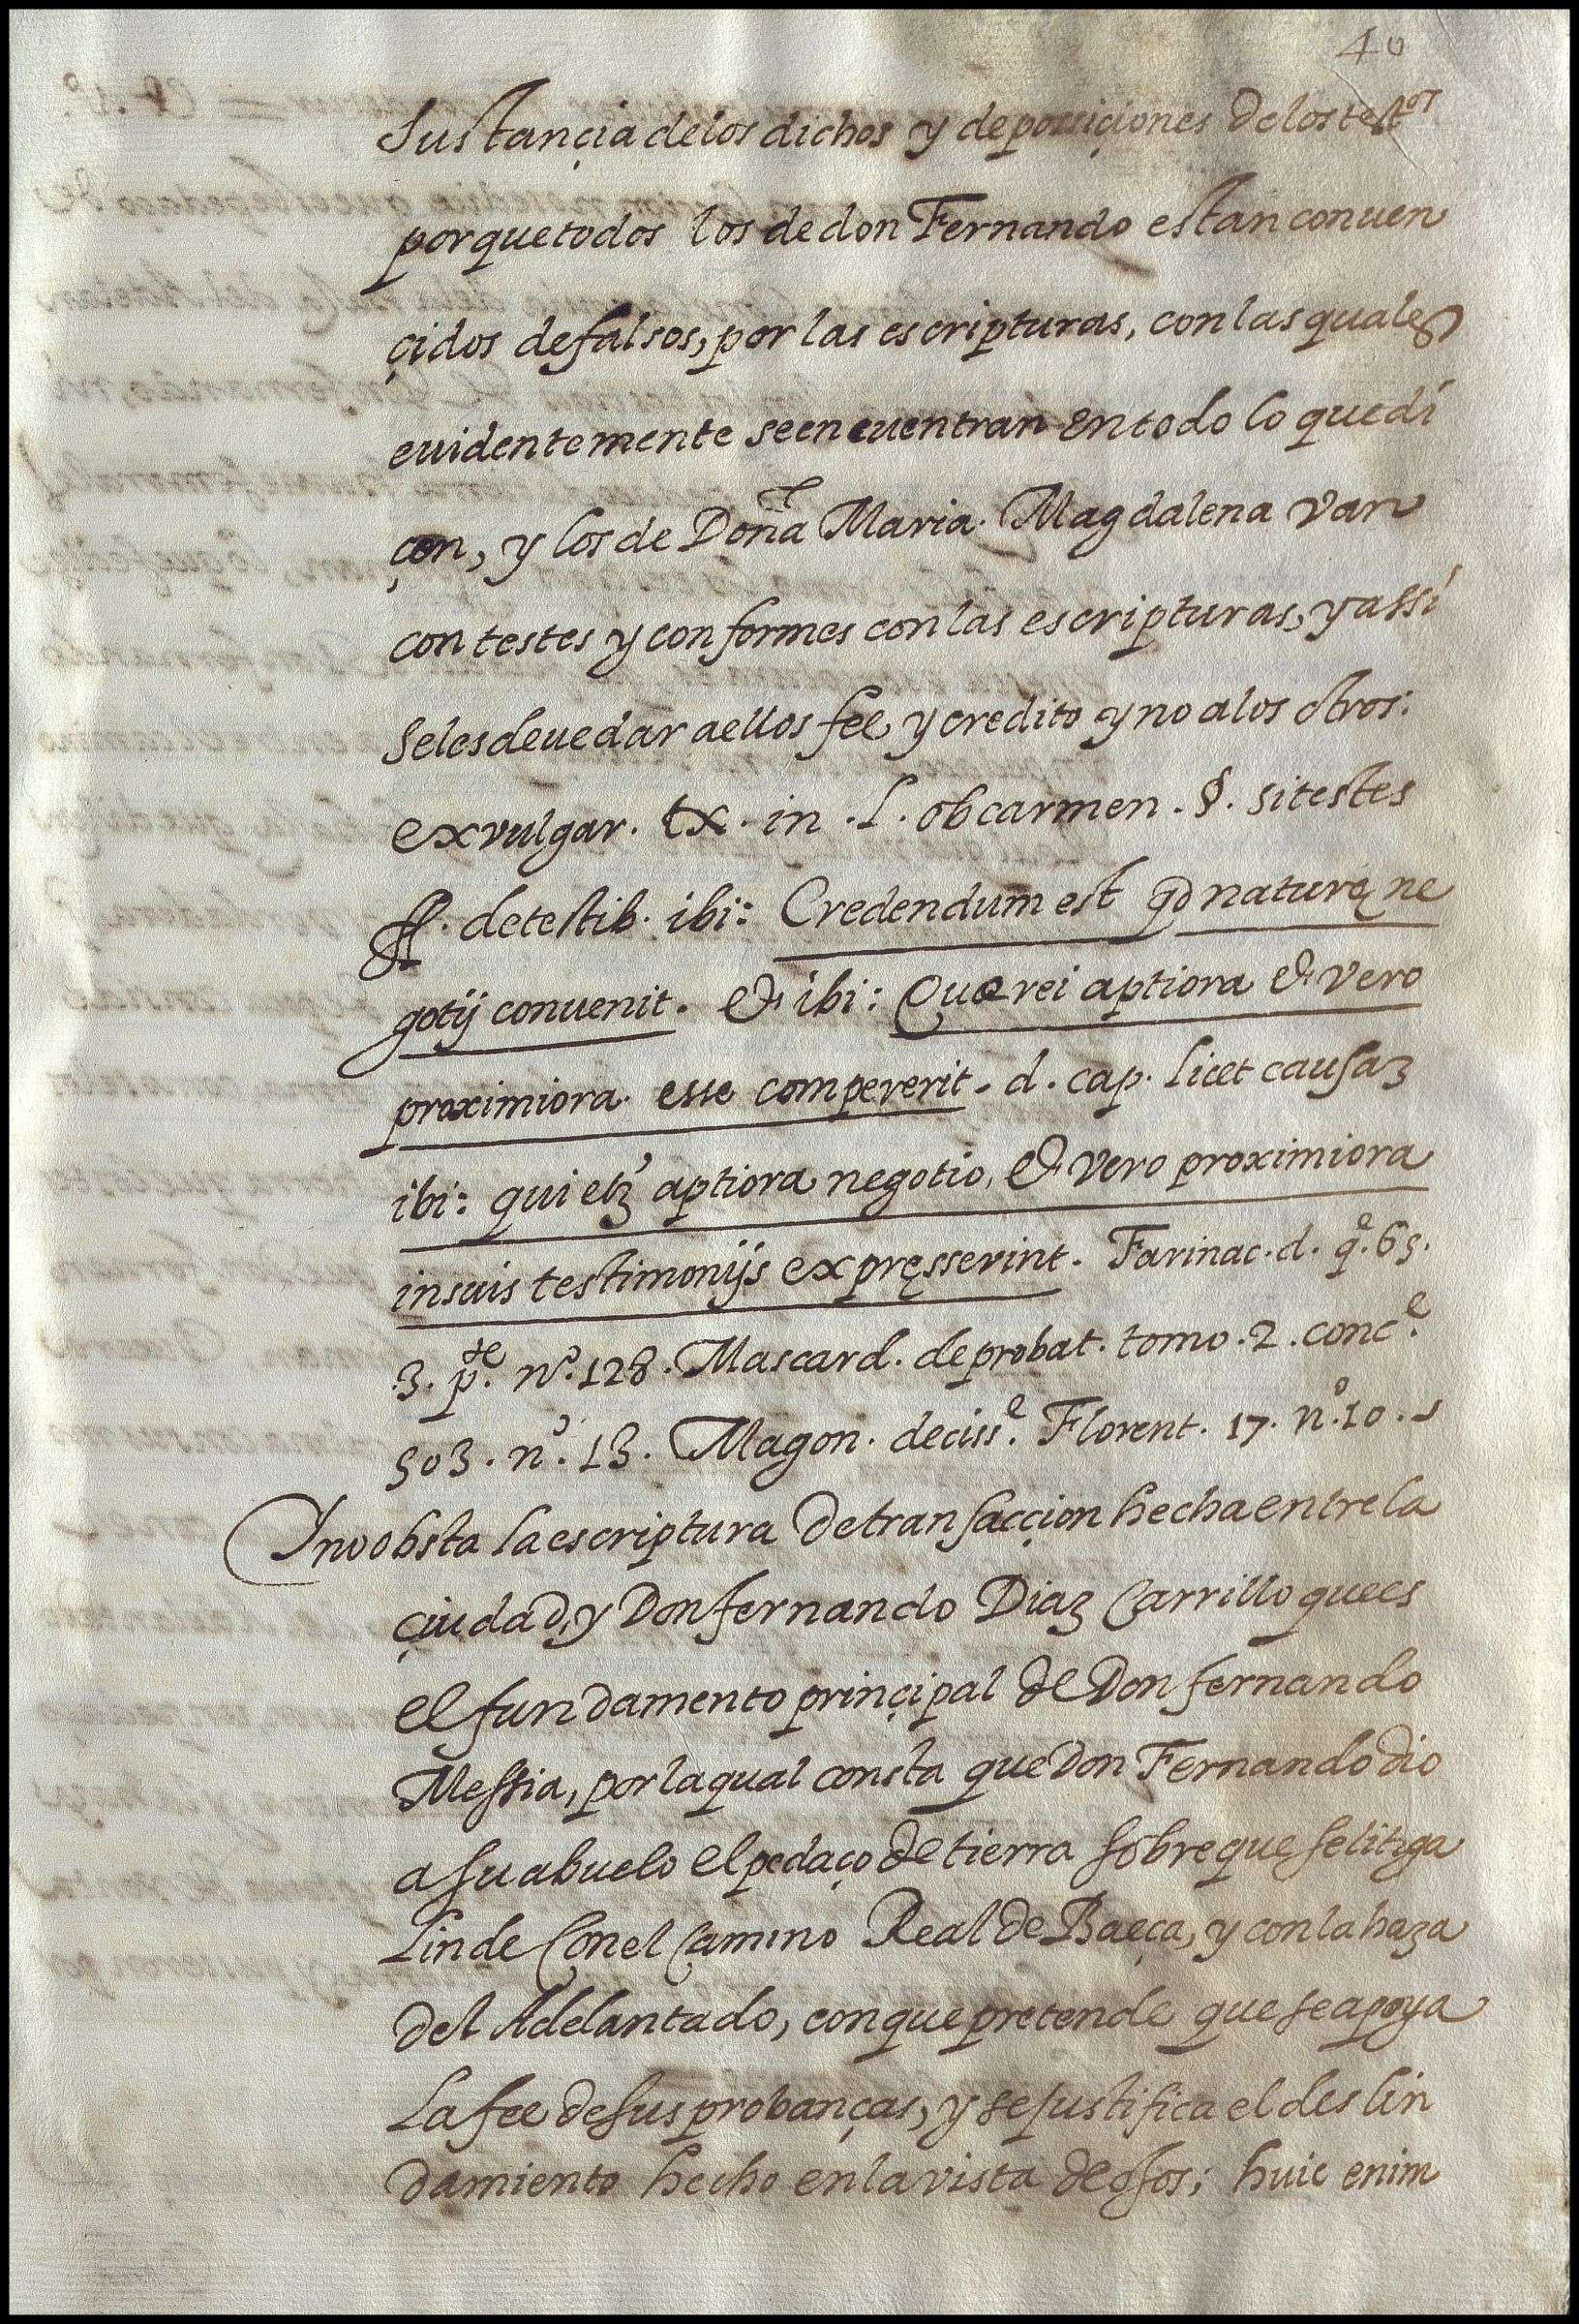 40
Sustançia de los dichos y deposiçiones de los test.os
porque todos los de don Fernando estan conuen
çidos de falsos, por las escripturas, con las quales
euidentemente se encuentran en todo lo que di
çen, y los de Doña Maria Magdalena van
contestes y conformes con las escripturas, y assi
se les deue dar a ellos fee y credito y no a los otros:
ex vulgar. tx. in .L. ob carmen .§. si testes
ff. de testib. ibi: Credendum est qd naturę ne
gotij conuenit. & ibi: Quae rei aptiora & vero
proximiora esse compererit. d. cap. licet causaz
ibi: qui etz aptiora negotio, & vero proximiora
in suis testimonijs expręsserint. Farinac. d. q.e 65.
3. p.te n.o 128. Mascard. de probat. tomo .2. conc.e
503. n.o 13. Magon. deciss.e Florent. 17. n.o 10.
Y no obsta la escriptura de transacçion hecha entre la
çiudad, y Don fernando Diaz Carrillo que es
el fundamento prinçipal de Don fernando
Messia, por la qual consta que Don Fernando dio
a su abuelo el pedaço de tierra sobre que se litiga
linde Con el Camino Real de Baeça, y con la haza
del Adelantado, con que pretende que se apoya
La fee de sus probanças, y se justifica el deslin
damiento hecho en la vista de ojos; huic enim